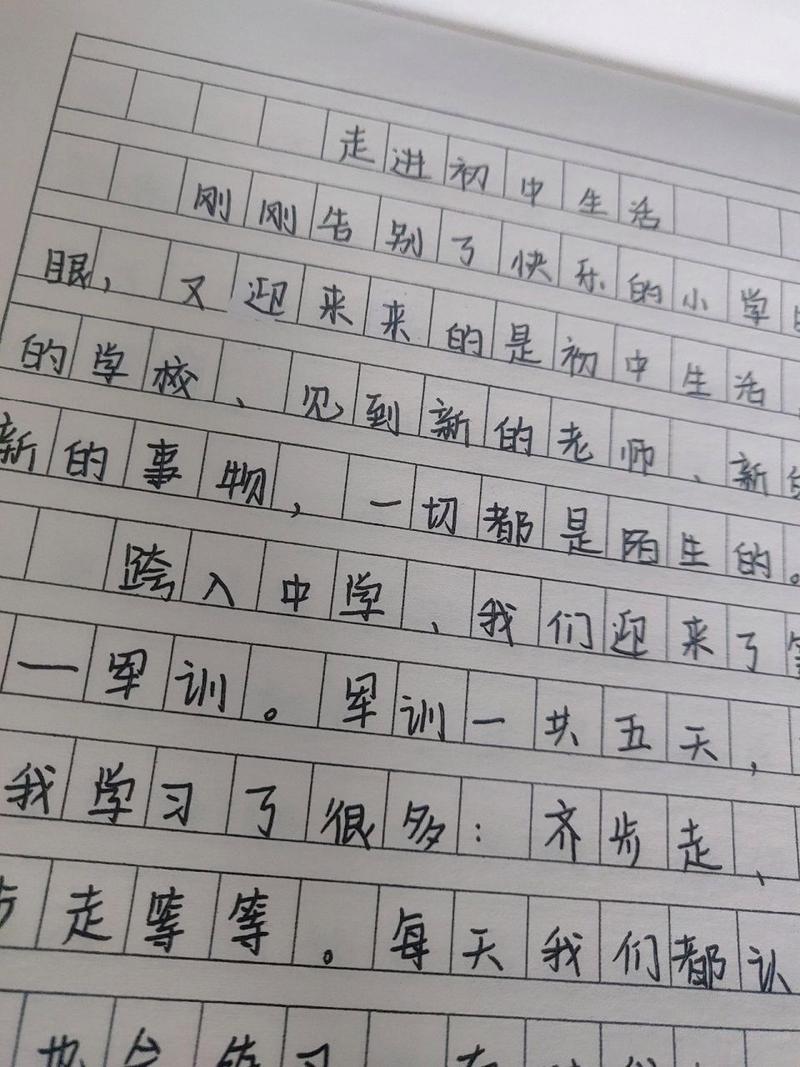 走进初中生活
刚刚告别了快乐的小学
眼，又迎来来的是初中生活
的学校、见到新的老师、新
新的事物，一切都是陌生的。
跨入中学、我们迎来了
一军训。军训一共五天，
我学习了很多：齐步走、
步走等等。每天我们都认
练习